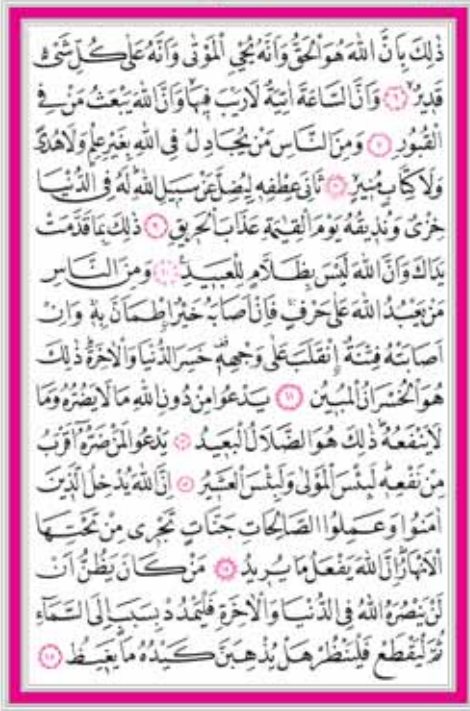 ذٰلِكَ بِاَنَّ اللّٰهَ هُوَ الْحَقُّ وَاَنَّهُ يُحْيِ الْمَوْتٰى وَاَنَّهُ عَلٰى كُلِّ شَيْءٍ
قَدِيرٌ ﴿٦﴾ وَاَنَّ السَّاعَةَ اٰتِيَةٌ لَا رَيْبَ فِيهَا وَاَنَّ اللّٰهَ يَبْعَثُ مَنْ فِي
الْقُبُورِ ﴿٧﴾ وَمِنَ النَّاسِ مَنْ يُجَادِلُ فِي اللّٰهِ بِغَيْرِ عِلْمٍ وَلَا هُدًى
وَلَا كِتَابٍ مُنِيرٍ ﴿٨﴾ ثَانِيَ عِطْفِهِ لِيُضِلَّ عَنْ سَبِيلِ اللّٰهِ لَهُ فِي الدُّنْيَا
خِزْيٌ وَنُذِيقُهُ يَوْمَ الْقِيٰمَةِ عَذَابَ الْحَرِيقِ ﴿٩﴾ ذٰلِكَ بِمَا قَدَّمَتْ
يَدَاكَ وَاَنَّ اللّٰهَ لَيْسَ بِظَلَّامٍ لِلْعَبِيدِ ﴿١٠﴾ وَمِنَ النَّاسِ
مَنْ يَعْبُدُ اللّٰهَ عَلٰى حَرْفٍ فَاِنْ اَصَابَهُ خَيْرٌ اِطْمَاَنَّ بِهِ وَاِنْ
اَصَابَتْهُ فِتْنَةٌ اِنْقَلَبَ عَلٰى وَجْهِهِ خَسِرَ الدُّنْيَا وَالْاٰخِرَةَ ذٰلِكَ
هُوَ الْخُسْرَانُ الْمُبِينُ ﴿١١﴾ يَدْعُوا مِنْ دُونِ اللّٰهِ مَا لَا يَضُرُّهُ وَمَا
لَا يَنْفَعُهُ ذٰلِكَ هُوَ الضَّلَالُ الْبَعِيدُ ﴿١٢﴾ يَدْعُوا لَمَنْ ضَرُّهُ اَقْرَبُ
مِنْ نَفْعِهِ لَبِئْسَ الْمَوْلٰى وَلَبِئْسَ الْعَشِيرُ ﴿١٣﴾ اِنَّ اللّٰهَ يُدْخِلُ الَّذِينَ
اٰمَنُوا وَعَمِلُوا الصَّالِحَاتِ جَنَّاتٍ تَجْرِي مِنْ تَحْتِهَا
الْاَنْهَارُ اِنَّ اللّٰهَ يَفْعَلُ مَا يُرِيدُ ﴿١٤﴾ مَنْ كَانَ يَظُنُّ اَنْ
لَنْ يَنْصُرَهُ اللّٰهُ فِي الدُّنْيَا وَالْاٰخِرَةِ فَلْيَمْدُدْ بِسَبَبٍ اِلَى السَّمَاءِ
ثُمَّ لْيَقْطَعْ فَلْيَنْظُرْ هَلْ يُذْهِبَنَّ كَيْدُهُ مَا يَغِيظُ ﴿١٥﴾